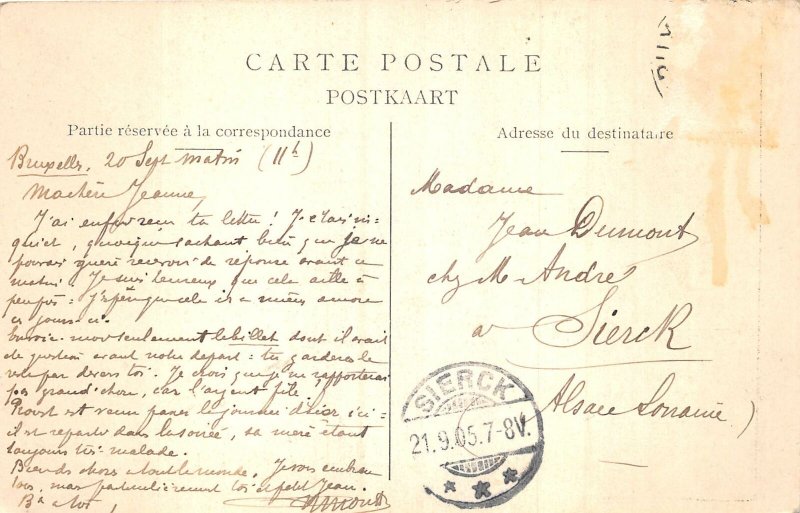 CARTE POSTALE
POSTKAART
Partie réservée à la correspondance
Bruxelles, 20 Sept matin (11h)
Ma chère Jeanne,
J'ai enfin reçu ta lettre ! J'étais in-
quiet, quoique sachant bien que je ne
pouvais guère recevoir de réponse avant ce
matin. Je suis heureux que cela aille à
peu près : j'espère que cela ira mieux encore
ces jours-ci.
moi seulement le billet dont il avait
été question avant notre départ : tu garderas le
par devers toi. Je crois que je n'en rapporterai
pas grand'chose, car l'argent file !
Provost est venu passer la journée d'hier ici :
il est reparti dans la soirée, sa mère étant
toujours très malade.
Bien des choses à tout le monde. Je vous embrasse
tous, mais particulièrement toi et petit Jean.
B à toi,
Dumont
Adresse du destinataire
Madame
Jean Dumont
chez M. André
à Sierck
Alsace Lorraine)
SIERCK
21.9.05.7-8V.